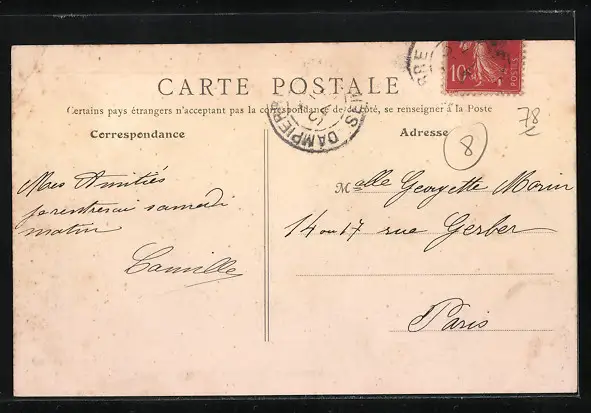 CARTE POSTALE
Certains pays étrangers n'acceptant pas la correspondance de ce côté, se renseigner à la Poste
Correspondance
Adresse
78
8
10c
POSTES
DAMPIERRE
Mes Amitiés
je rentrerai samedi
matin
Camille
Melle Georgette Morin
14 ou 17 rue Gerber
Paris